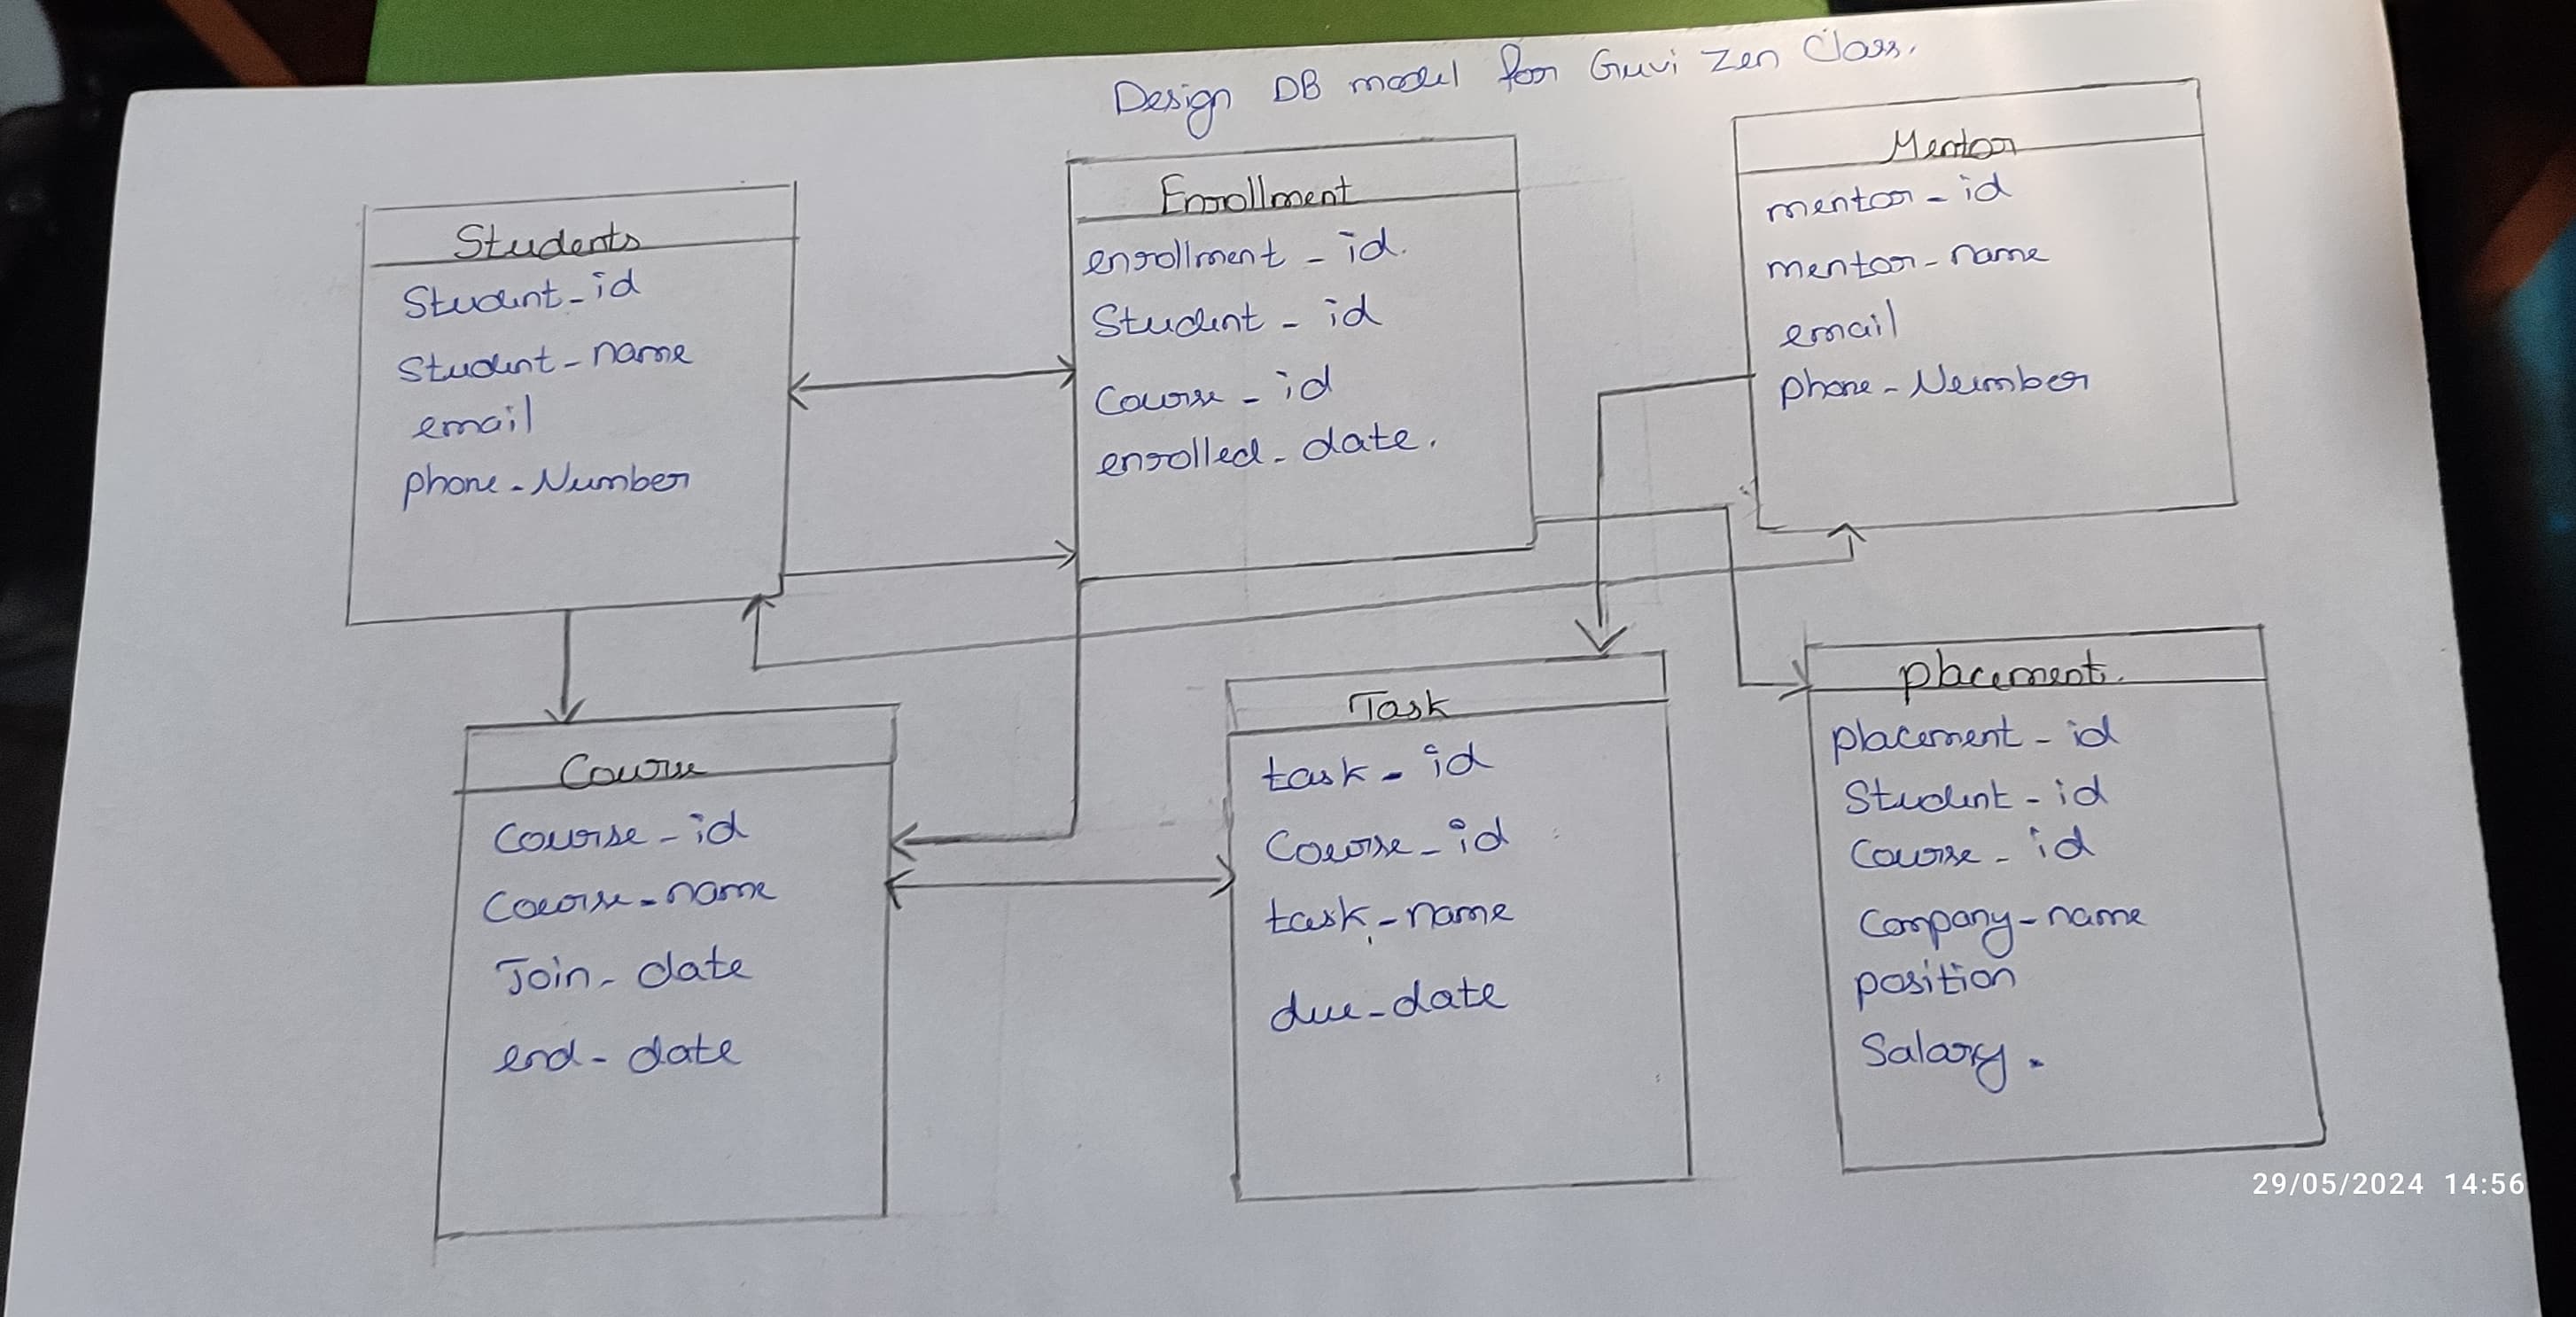 Design DB model for Guvi Zen Class.
Students
Student_id
Student_name
email
phone_Number
Enrollment
enrollment_id.
Student_id
Course_id
enrolled_date.
Mentor
mentor_id
mentor_name
email
phone_Number
Course
Course_id
Course_name
Join_date
end_date
Task
task_id
Course_id
task_name
due_date
placement.
placement_id
Student_id
Course_id
Company_name
position
Salary.
29/05/2024 14:56